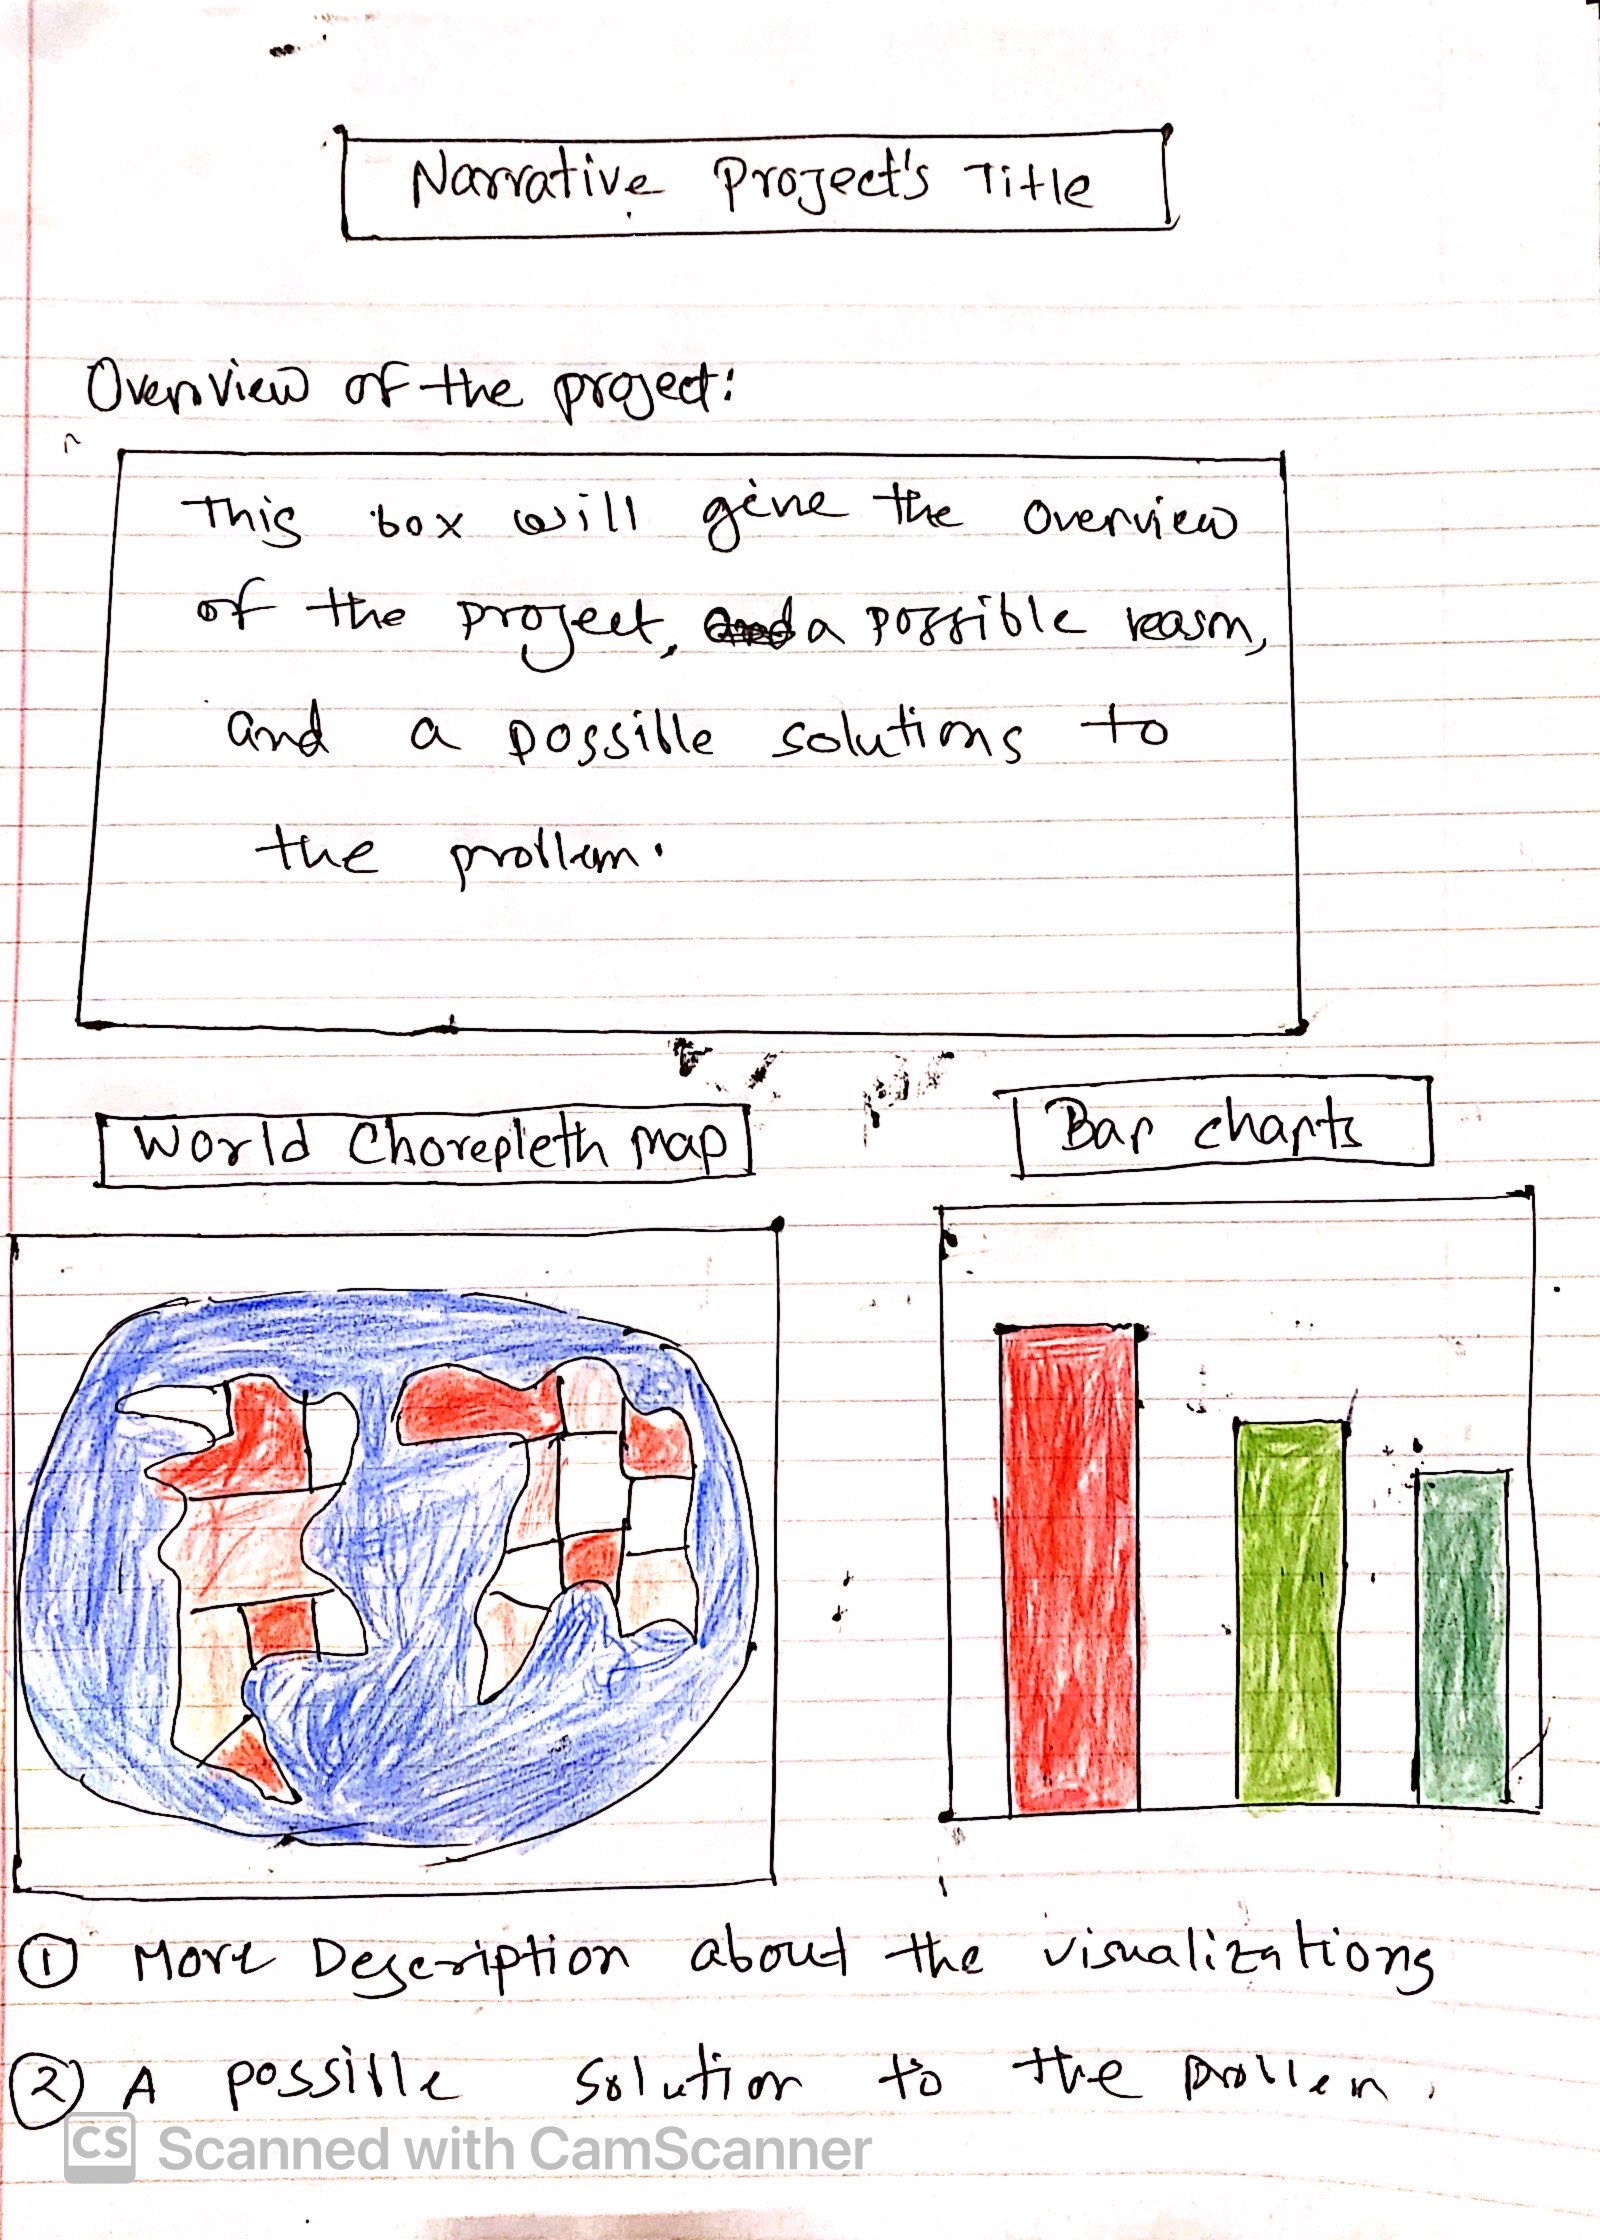 Narrative Project's Title
Overview of the project:
This box will give the overview
of the project, a possible reason,
and a possible solutions to
the problem.
World Chorepleth map
Bar charts
① More Description about the visualizations
② A possible solution to the problem.
CS Scanned with CamScanner